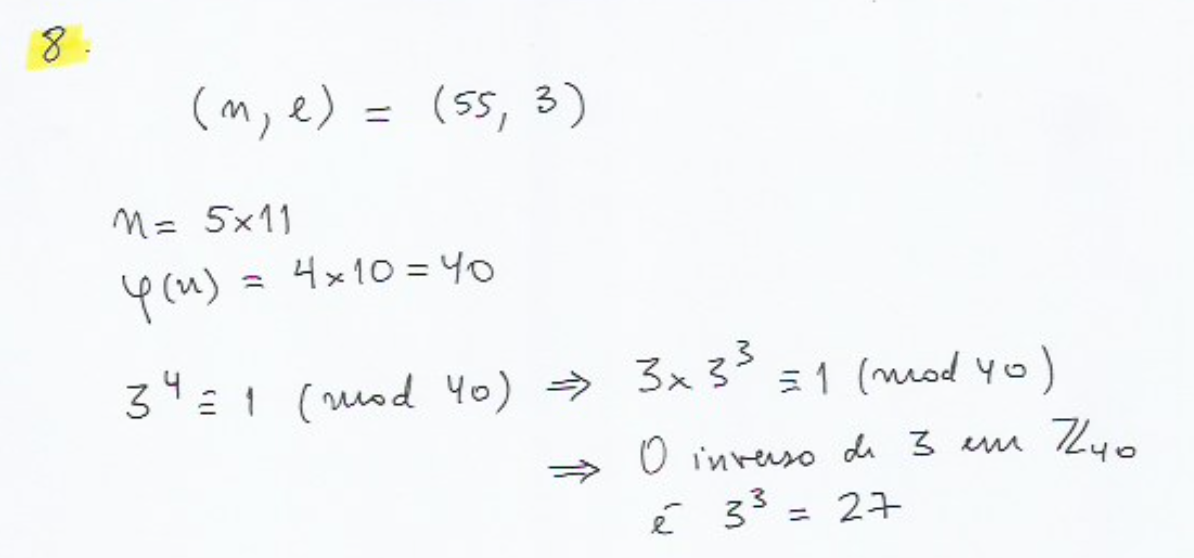 8.
(n, e) = (55, 3)
n = 5×11
φ(n) = 4×10 = 40
3⁴ ≡ 1 (mod 40) ⇒ 3×3³ ≡ 1 (mod 40)
⇒ O inverso de 3 em ℤ₄₀
é 3³ = 27